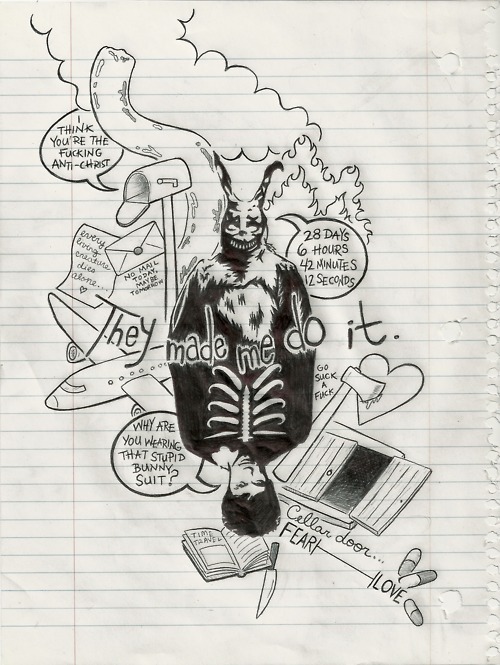 I
THINK
YOU'RE THE
FUCKING
ANTI-CHRIST
every
living
creature
dies
alone...
NO MAIL
TODAY.
MAYBE
TOMORROW
28 DAYS
6 HOURS
42 MINUTES
12 SECONDS
They made me do it.
GO
SUCK
A
FUCK
WHY ARE
YOU WEARING
THAT STUPID
BUNNY
SUIT?
TIME
TRAVEL
Cellar door...
FEAR
LOVE